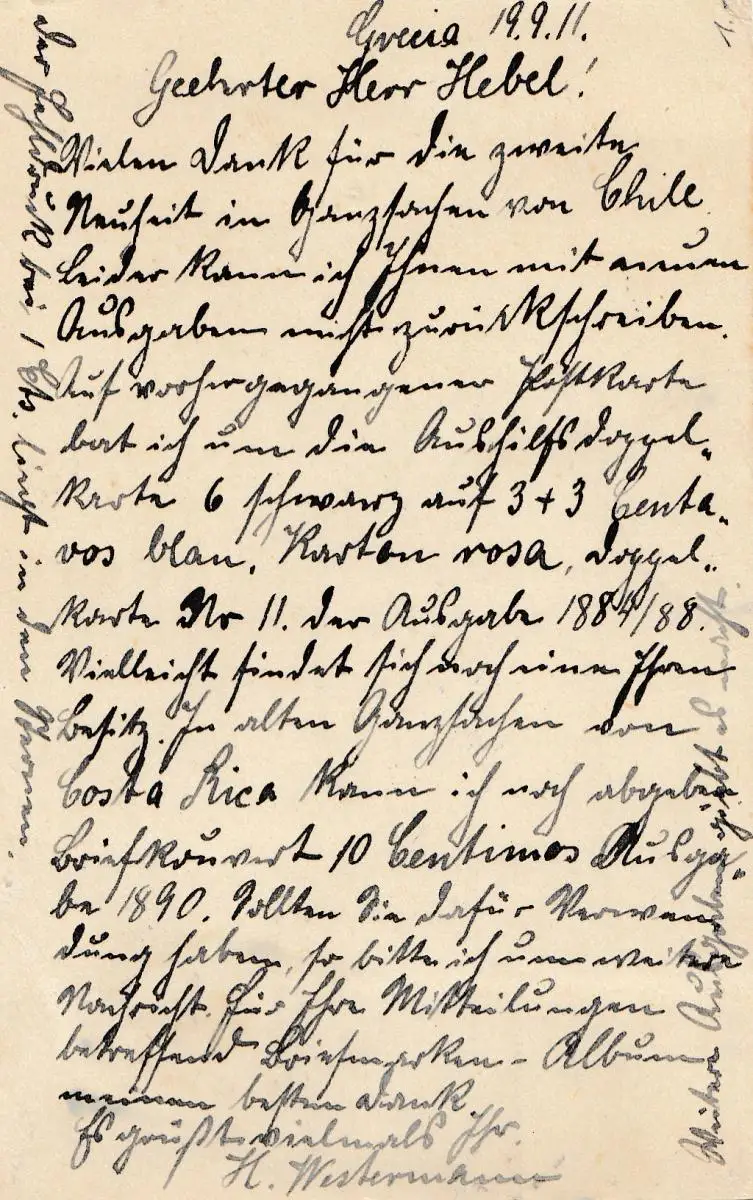 Grecia 19.9.11.
Geehrter Herr Hebel!
Vielen Dank für die zweite
Neuheit in Ganzsachen von Chile.
Leider kann ich Ihnen mit neuen
Ausgaben nicht zurückschreiben.
Auf vorhergegangener Postkarte
bat ich um die Aushilfsdoppel„
karte 6 schwarz auf 3 + 3 Centa„
vos blau, Karton rosa, Doppel„
karte No 11. der Ausgabe 1884/88.
Vielleicht findet sich noch eine Ihren
Besitz. In alten Ganzsachen von
Costa Rica kann ich noch abgeben
Briefkouvert 10 Centimos Ausga„
be 1890. Sollten Sie dafür Verwen
dung haben, so bitte ich um weitere
Nachricht. Für Ihre Mitteilungen
betreffend Briefmarken-Album
meinen besten Dank
Es grüßt vielmals Ihr.
H. Westermann
Weitere Ausgaben giebt es nicht.
der Fehldruck bei 1 Cts. liegt in den